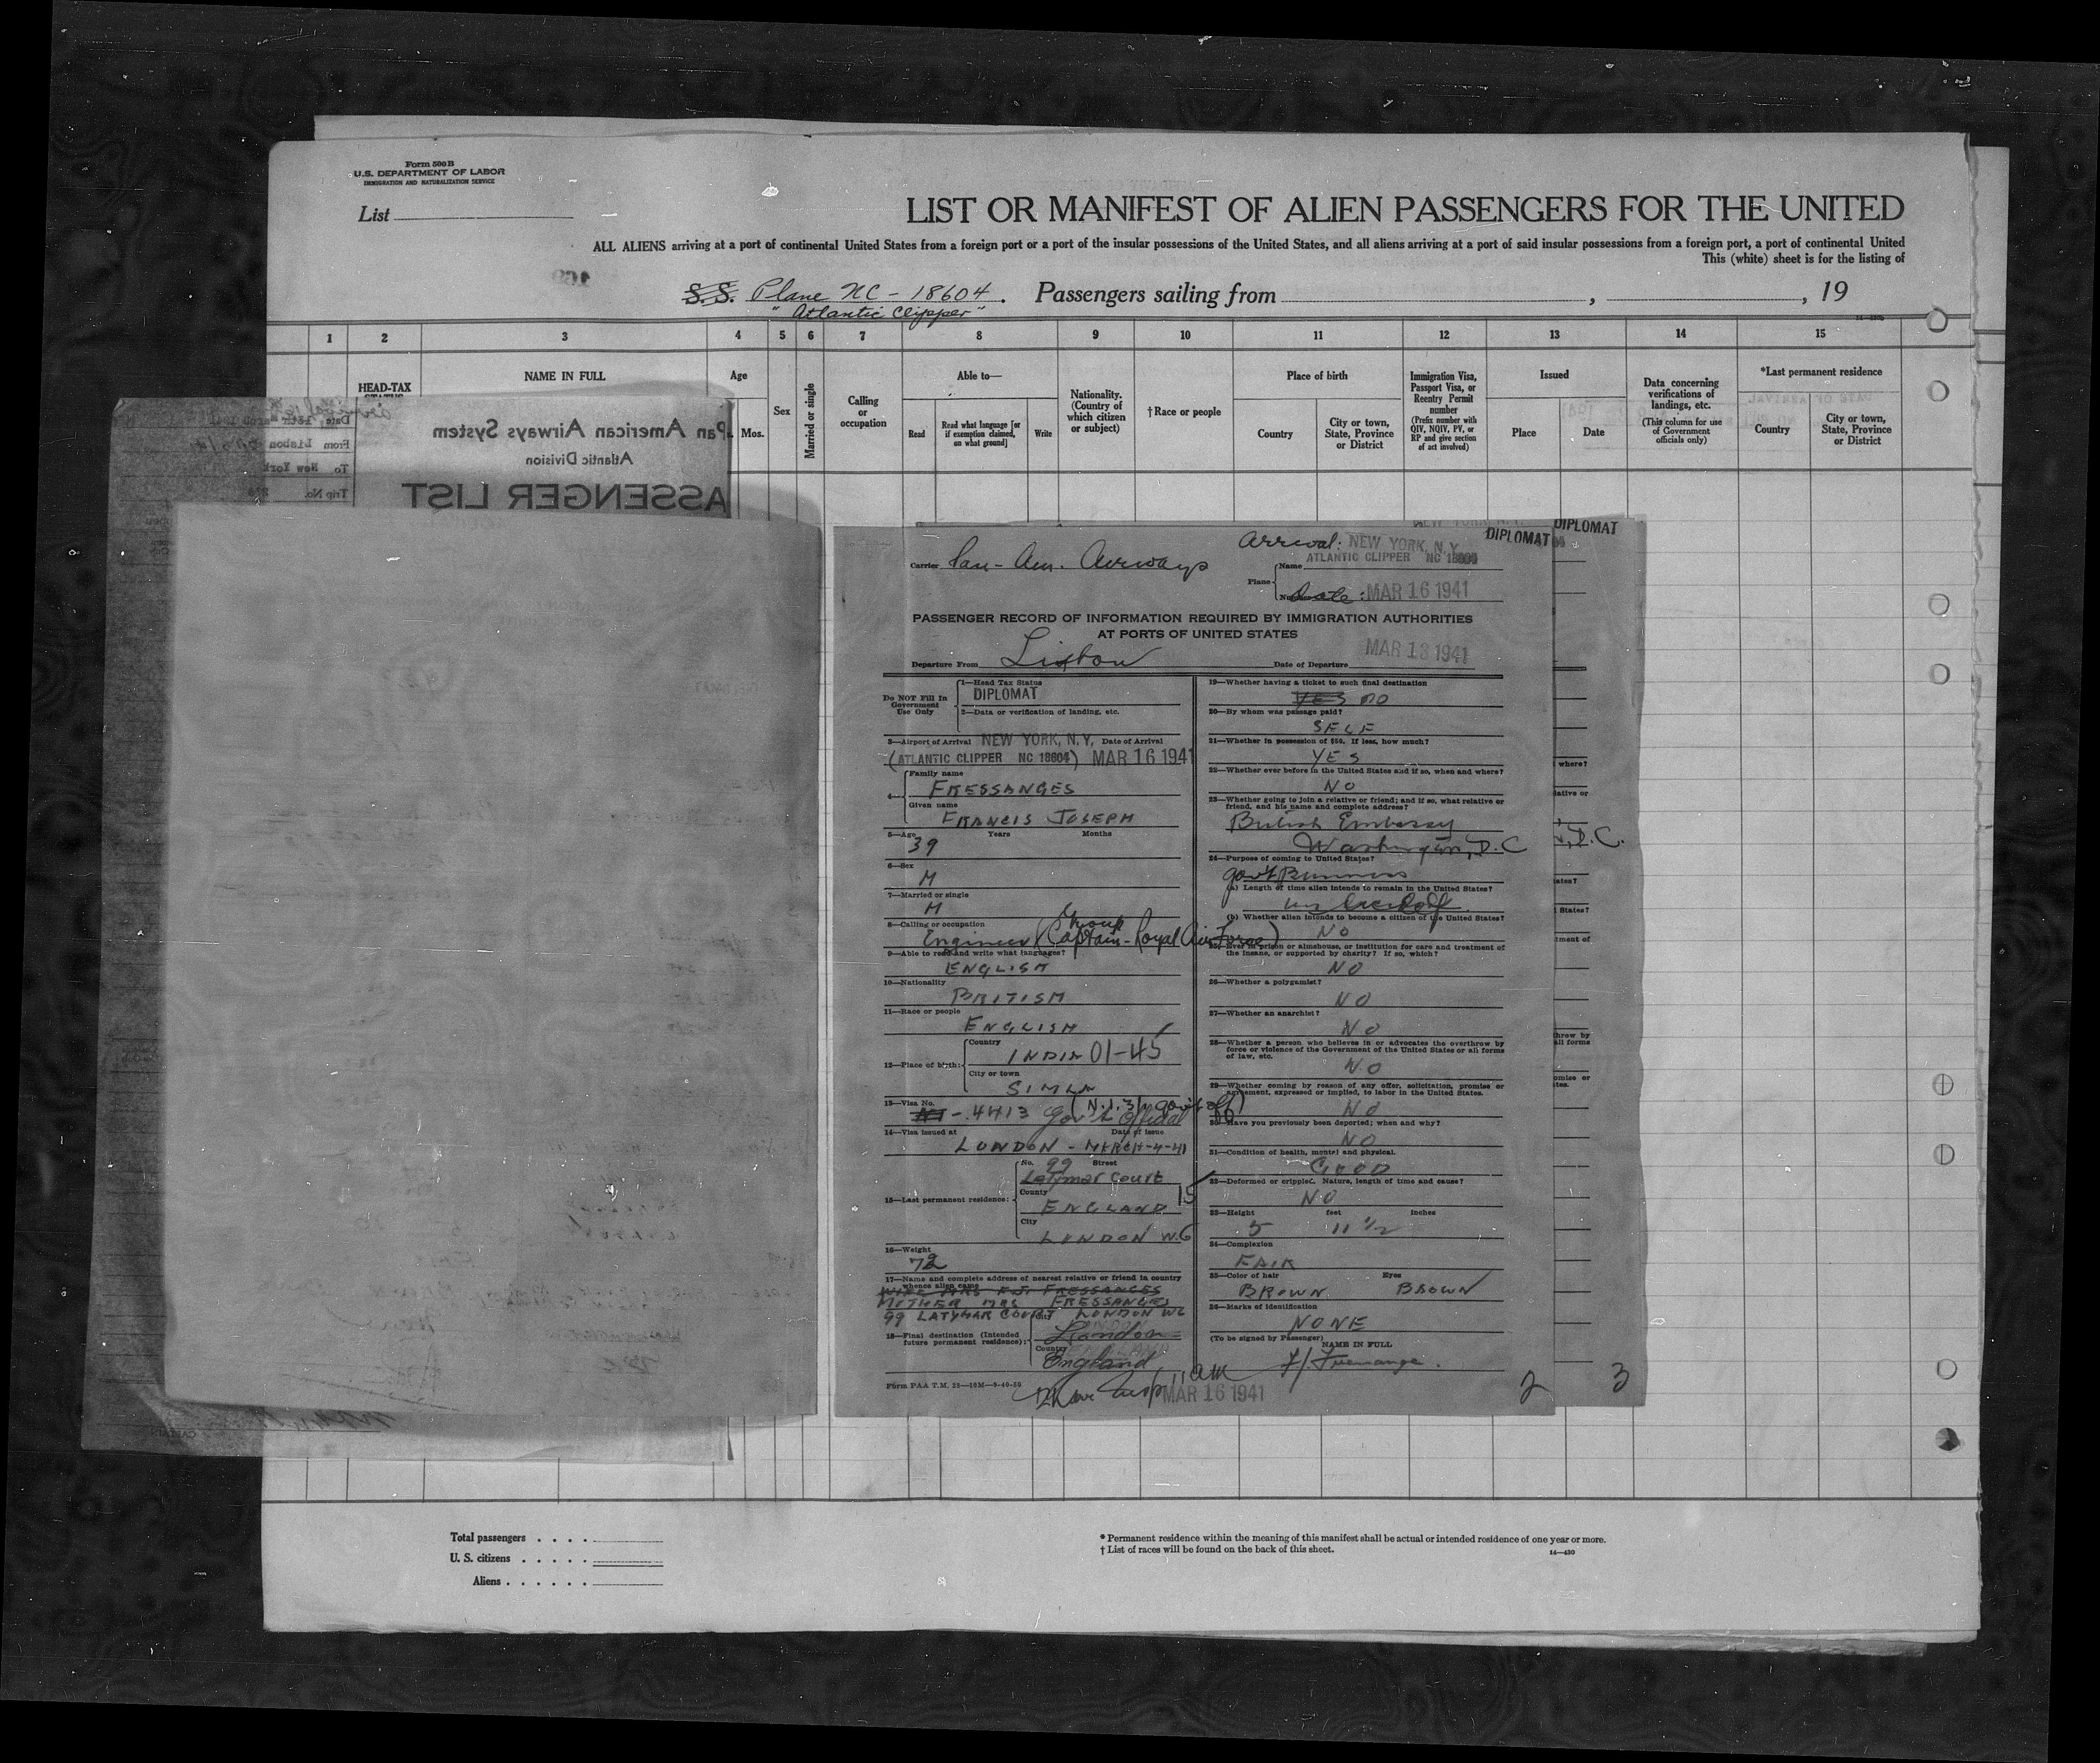 Form 500 B
U.S. DEPARTMENT OF LABOR
IMMIGRATION AND NATURALIZATION SERVICE
List
LIST OR MANIFEST OF ALIEN PASSENGERS FOR THE UNITED
ALL ALIENS arriving at a port of continental United States from a foreign port or a port of the insular possessions of the United States, and all aliens arriving at a port of said insular possessions from a foreign port, a port of continental United
This (white) sheet is for the listing of
S.S. Plane NC - 18604. Passengers sailing from , , 19
"Atlantic Clipper"
1 2 3 4 5 6 7 8 9 10 11 12 13 14 15
HEAD-TAX
STATUS
NAME IN FULL
Age
Mos.
Sex
Married or single
Calling
or
occupation
Able to—
Read
Read what language [or
if exemption claimed,
on what ground]
Write
Nationality.
(Country of
which citizen
or subject)
†Race or people
Place of birth
Country
City or town,
State, Province
or District
Immigration Visa,
Passport Visa, or
Reentry Permit
number
(Prefix number with
QIV, NQIV, PV, or
RP and give section
of act involved)
Issued
Place
Date
Data concerning
verifications of
landings, etc.
(This column for use
of Government
officials only)
*Last permanent residence
Country
City or town,
State, Province
or District
Pan American Airways System
Atlantic Division
ASSENGER LIST
Date,
From Lisbon
To New York
Trip No.
DIPLOMAT
DIPLOMAT
Carrier Pan-Am. Airways
Arrival: NEW YORK, N.Y.
Plane
Name ATLANTIC CLIPPER NC 18604
Date: MAR 16 1941
PASSENGER RECORD OF INFORMATION REQUIRED BY IMMIGRATION AUTHORITIES
AT PORTS OF UNITED STATES
Departure From Lisbon Date of Departure MAR 13 1941
Do NOT Fill In
Government
Use Only
1—Head Tax Status
DIPLOMAT
2—Data or verification of landing, etc.
3—Airport of Arrival NEW YORK, N.Y. Date of Arrival
(ATLANTIC CLIPPER NC 18604) MAR 16 1941
4—
Family name
FRESSANGES
Given name
FRANCIS JOSEPH
5—Age Years Months
39
6—Sex
M
7—Married or single
M
8—Calling or occupation
Engineer (Group Captain - Royal Air Force)
9—Able to read and write what languages?
ENGLISH
10—Nationality
BRITISH
11—Race or people
ENGLISH
12—Place of birth:
Country
INDIA 01-45
City or town
SIMLA
13—Visa No.
4413 Gov't Official
14—Visa issued at Date of issue
LONDON - MARCH-4-41
15—Last permanent residence:
No. 99 Street
Latymar Court
County
ENGLAND 15
City
LONDON W.6
16—Weight
72
17—Name and complete address of nearest relative or friend in country
whence alien came
WIFE MRS F.J. FRESSANGES
MOTHER MRS FRESSANGES
99 LATYMAR COURT LONDON W6
18—Final destination (Intended
future permanent residence):
City
London
Country
England
Form PAA T.M. 25—10M—9-40-50
11 AM
MAR 16 1941
19—Whether having a ticket to such final destination
YES NO
20—By whom was passage paid?
SELF
21—Whether in possession of $50. If less, how much?
YES
22—Whether ever before in the United States and if so, when and where?
NO
23—Whether going to join a relative or friend; and if so, what relative or
friend, and his name and complete address?
British Embassy
Washington, D.C
24—Purpose of coming to United States?
Gov't Business
(a) Length of time alien intends to remain in the United States?
(b) Whether alien intends to become a citizen of the United States?
NO
25—Ever in prison or almshouse, or institution for care and treatment of
the insane, or supported by charity? If so, which?
NO
26—Whether a polygamist?
NO
27—Whether an anarchist?
NO
28—Whether a person who believes in or advocates the overthrow by
force or violence of the Government of the United States or all forms
of law, etc.
NO
29—Whether coming by reason of any offer, solicitation, promise or
agreement, expressed or implied, to labor in the United States.
NO
30—Have you previously been deported; when and why?
NO
31—Condition of health, mental and physical.
GOOD
32—Deformed or crippled. Nature, length of time and cause?
NO
33—Height feet inches
5 11 1/2
34—Complexion
FAIR
35—Color of hair Eyes
BROWN BROWN
36—Marks of identification
NONE
(To be signed by Passenger)
NAME IN FULL
F.J. Fressanges.
2
3
where?
lative or
, D.C.
ates?
States?
tment of
throw by
all forms
omise or
tes.
Total passengers . . . .
U. S. citizens . . . . .
Aliens . . . . . .
* Permanent residence within the meaning of this manifest shall be actual or intended residence of one year or more.
† List of races will be found on the back of this sheet.
14—430